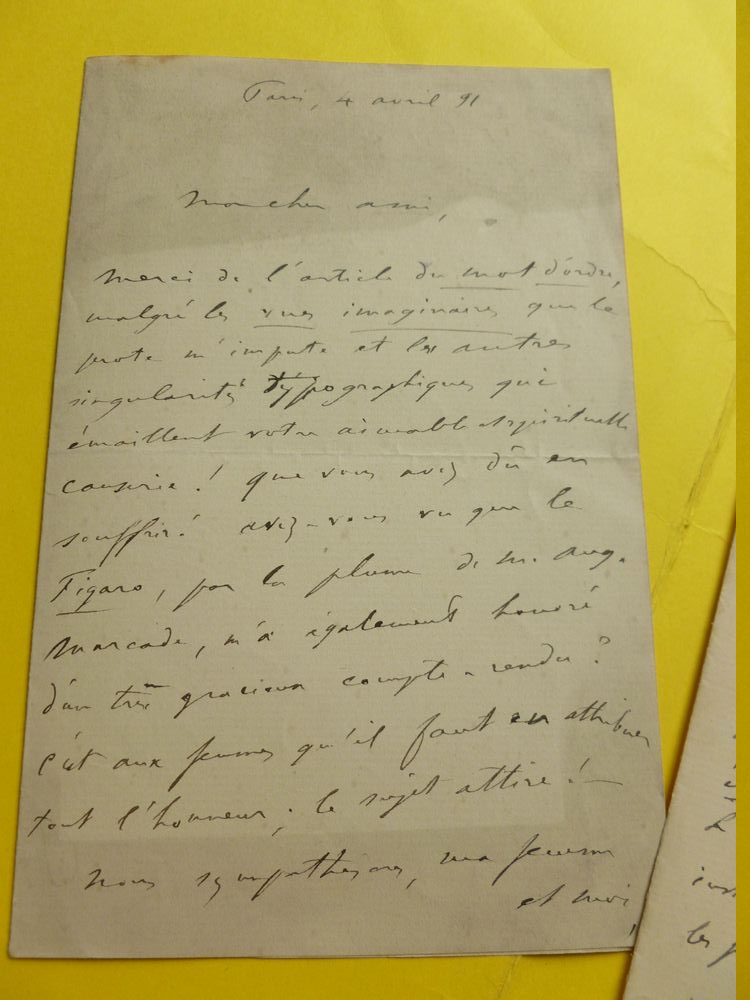 Paris, 4 avril 91
Mon cher ami,
Merci de l'article du mot d'ordre,
malgré les vues imaginaires que le
prote m'impute et les autres
singularités typographiques qui
émaillent votre aimable et spirituelle
causerie! que vous avez dû en
souffrir! avez-vous vu que le
Figaro, par la plume de M. Aug.
Marcade, m'a également honoré
d'un très gracieux compte-rendu?
c'est aux femmes qu'il faut en attribuer
tout l'honneur; le sujet attire! —
Nous sympathisons, ma femme
et moi,
les